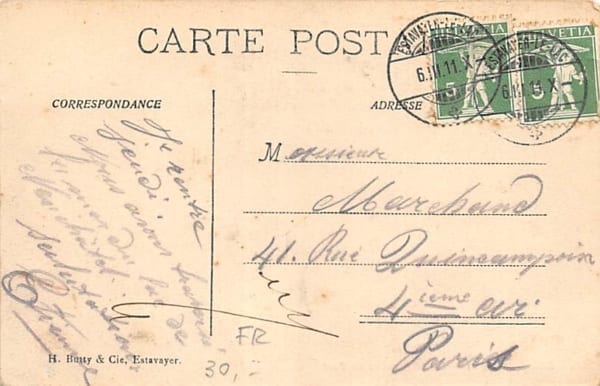 CARTE POST
ESTAVAYER-LE-LAC
6.III.11.X
HELVETIA
5
ESTAVAYER-LE-LAC
6.III.11.X
HELVETIA
5
CORRESPONDANCE
ADRESSE
Je rentre
jeudi.
Nous avons
lac de
Neuchâtel
Monsieur
Marchand
41. Rue Quincampoix
4ième arr
Paris
FR
30,-
H. Butty & Cie, Estavayer.